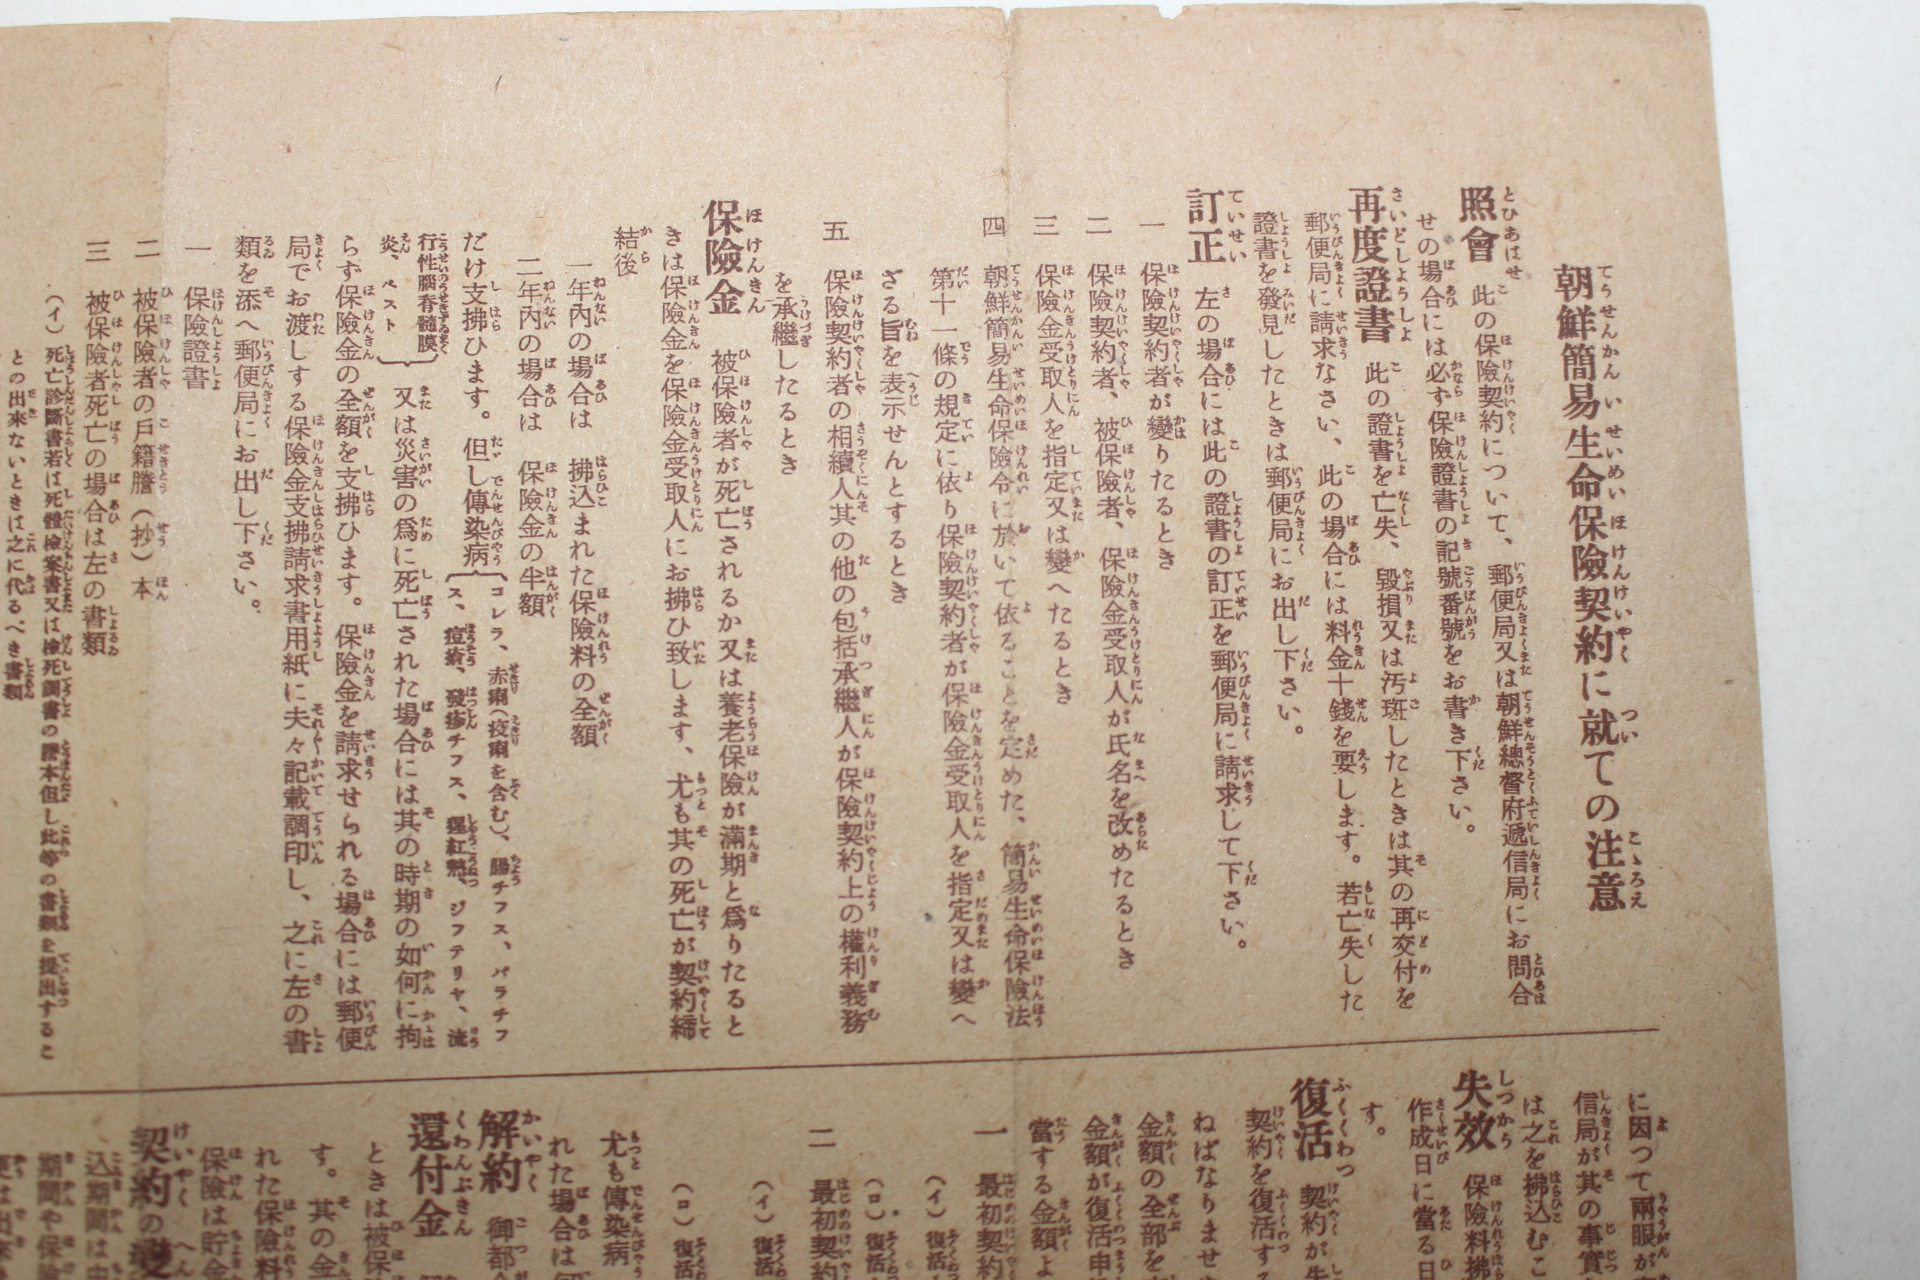 朝鮮簡易生命保險契約に就ての注意
照會 此の保險契約について、郵便局又は朝鮮總督府遞信局にお問合
せの場合には必ず保險證書の記號番號をお書き下さい。
再度證書 此の證書を亡失、毀損又は汚斑したときは其の再交付を
郵便局に請求なさい、此の場合には料金十錢を要します。若亡失した
證書を發見したときは郵便局にお出し下さい。
訂正 左の場合には此の證書の訂正を郵便局に請求して下さい。
一 保險契約者が變りたるとき
二 保險契約者、被保險者、保險金受取人が氏名を改めたるとき
三 保險金受取人を指定又は變へたるとき
四 朝鮮簡易生命保險令に於いて依ることを定めた、簡易生命保險法
第十一條の規定に依り保險契約者が保險金受取人を指定又は變へ
ざる旨を表示せんとするとき
五 保險契約者の相續人其の他の包括承繼人が保險契約上の權利義務
を承繼したるとき
保險金 被保險者が死亡されるか又は養老保險が滿期と爲りたると
きは保險金を保險金受取人にお拂ひ致します、尤も其の死亡が契約締
結後
一年內の場合は 拂込まれた保險料の全額
二年內の場合は 保險金の半額
だけ支拂ひます。但し傳染病
コレラ、赤痢(疫痢を含む)、腸チフス、パラチフ
ス、痘瘡、發疹チフス、猩紅熱、ジフテリヤ、流
行性腦脊髓膜
炎、ペスト
又は災害の爲に死亡された場合には其の時期の如何に拘
らず保險金の全額を支拂ひます。保險金を請求せられる場合には郵便
局でお渡しする保險金支拂請求書用紙に夫々記載調印し、之に左の書
類を添へ郵便局にお出し下さい。
一 保險證書
二 被保險者の戶籍謄(抄)本
三 被保險者死亡の場合は左の書類
(イ) 死亡診斷書若は死體檢案書又は檢死調書の謄本但し此等の書類を提出するこ
との出來ないときは之に代るべき書類
に因つて兩眼が
信局が其の事實
は之を拂込むこ
失效 保險料拂
作成日に當る日
す。
復活 契約が失
契約を復活する
ねばなりませ
金額の全部を
金額が復活申
當する金額よ
一 最初契約
(イ) 復活
(ロ) 復活
二 最初契約
(イ) 復活
(ロ) 復活
尤も傳染病
れた場合は
解約 御都合
還付金
ときは被保
す。其の金
れた保險料
保險は貯金
契約の變
込期間は
期間や保險